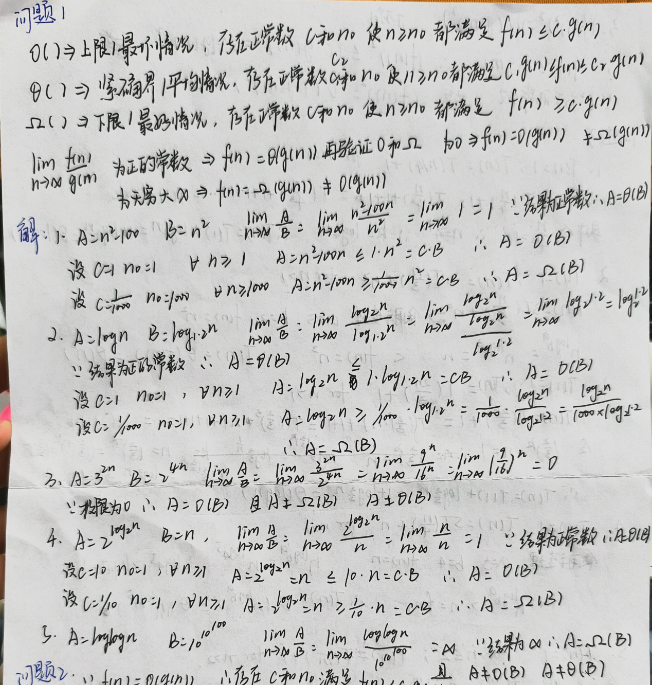 问题1
O( ) ⇒ 上限/最坏情况, 存在正常数 C和n₀ 使 n≥n₀ 都满足 f(n) ≤ c·g(n)
θ( ) ⇒ 紧确界/平均情况, 存在正常数 C₁ C₂和n₀ 使 n≥n₀ 都满足 C₁g(n)≤f(n)≤C₂g(n)
Ω( ) ⇒ 下限/最好情况, 存在正常数 C和n₀ 使 n≥n₀ 都满足 f(n) ≥ c·g(n)
lim n→∞ f(n)/g(n) 为正的常数 ⇒ f(n) = θ(g(n)) 再验证O和Ω 为0 ⇒ f(n) = O(g(n)) ≠ Ω(g(n))
为无穷大∞ ⇒ f(n) = Ω(g(n)) ≠ O(g(n))
解: 1. A=n²-100n B=n² lim n→∞ A/B = lim n→∞ (n²-100n)/n² = lim n→∞ 1 = 1 ∵结果为正常数 ∴A=θ(B)
设 C=1 n₀=1 ∀n≥1 A=n²-100n ≤ 1·n² = C·B ∴ A = O(B)
设 C=1/1000 n₀=1000 ∀n≥1000 A=n²-100n ≥ 1/1000 n² = C·B ∴ A = Ω(B)
2. A=logn B=log₁.₂n lim n→∞ A/B = lim n→∞ log₂n/log₁.₂n = lim n→∞ log₂n/(log₂n/log₂1.2) = lim n→∞ log₂1.2 = log₂1.2
∵ 结果为正的常数 ∴ A=θ(B)
设C=1 n₀=1, ∀n≥1 A=log₂n ≤ 1·log₁.₂n = CB ∴ A = O(B)
设C=1/1000 n₀=1, ∀n≥1 A=log₂n ≥ 1/1000·log₁.₂n = 1/1000·log₂n/log₂1.2 = log₂n/(1000×log₂1.2)
∴ A=Ω(B)
3. A=3²ⁿ B=2⁴ⁿ lim n→∞ A/B = lim n→∞ 3²ⁿ/2⁴ⁿ = lim n→∞ 9ⁿ/16ⁿ = lim n→∞ (9/16)ⁿ = 0
∵极限为0 ∴ A=O(B) 且A≠Ω(B) A≠θ(B)
4. A=2^log₂n B=n, lim n→∞ A/B = lim n→∞ 2^log₂n/n = lim n→∞ n/n = 1 ∵结果为正常数 ∴A=θ(B)
设C=10 n₀=1, ∀n≥1 A=2^log₂n=n ≤ 10·n=C·B ∴ A= O(B)
设C=1/10 n₀=1, ∀n≥1 A=2^log₂n=n ≥ 1/10·n = C·B ∴ A=Ω(B)
5. A=loglogn B=10^10^100 lim n→∞ A/B = lim n→∞ loglogn/10^10^100 = ∞ ∵结果为∞ ∴A=Ω(B)
且 A≠O(B) A≠θ(B)
问题2: ∵ f(n)=O(g(n)) ∴存在 C和n₀ 满足